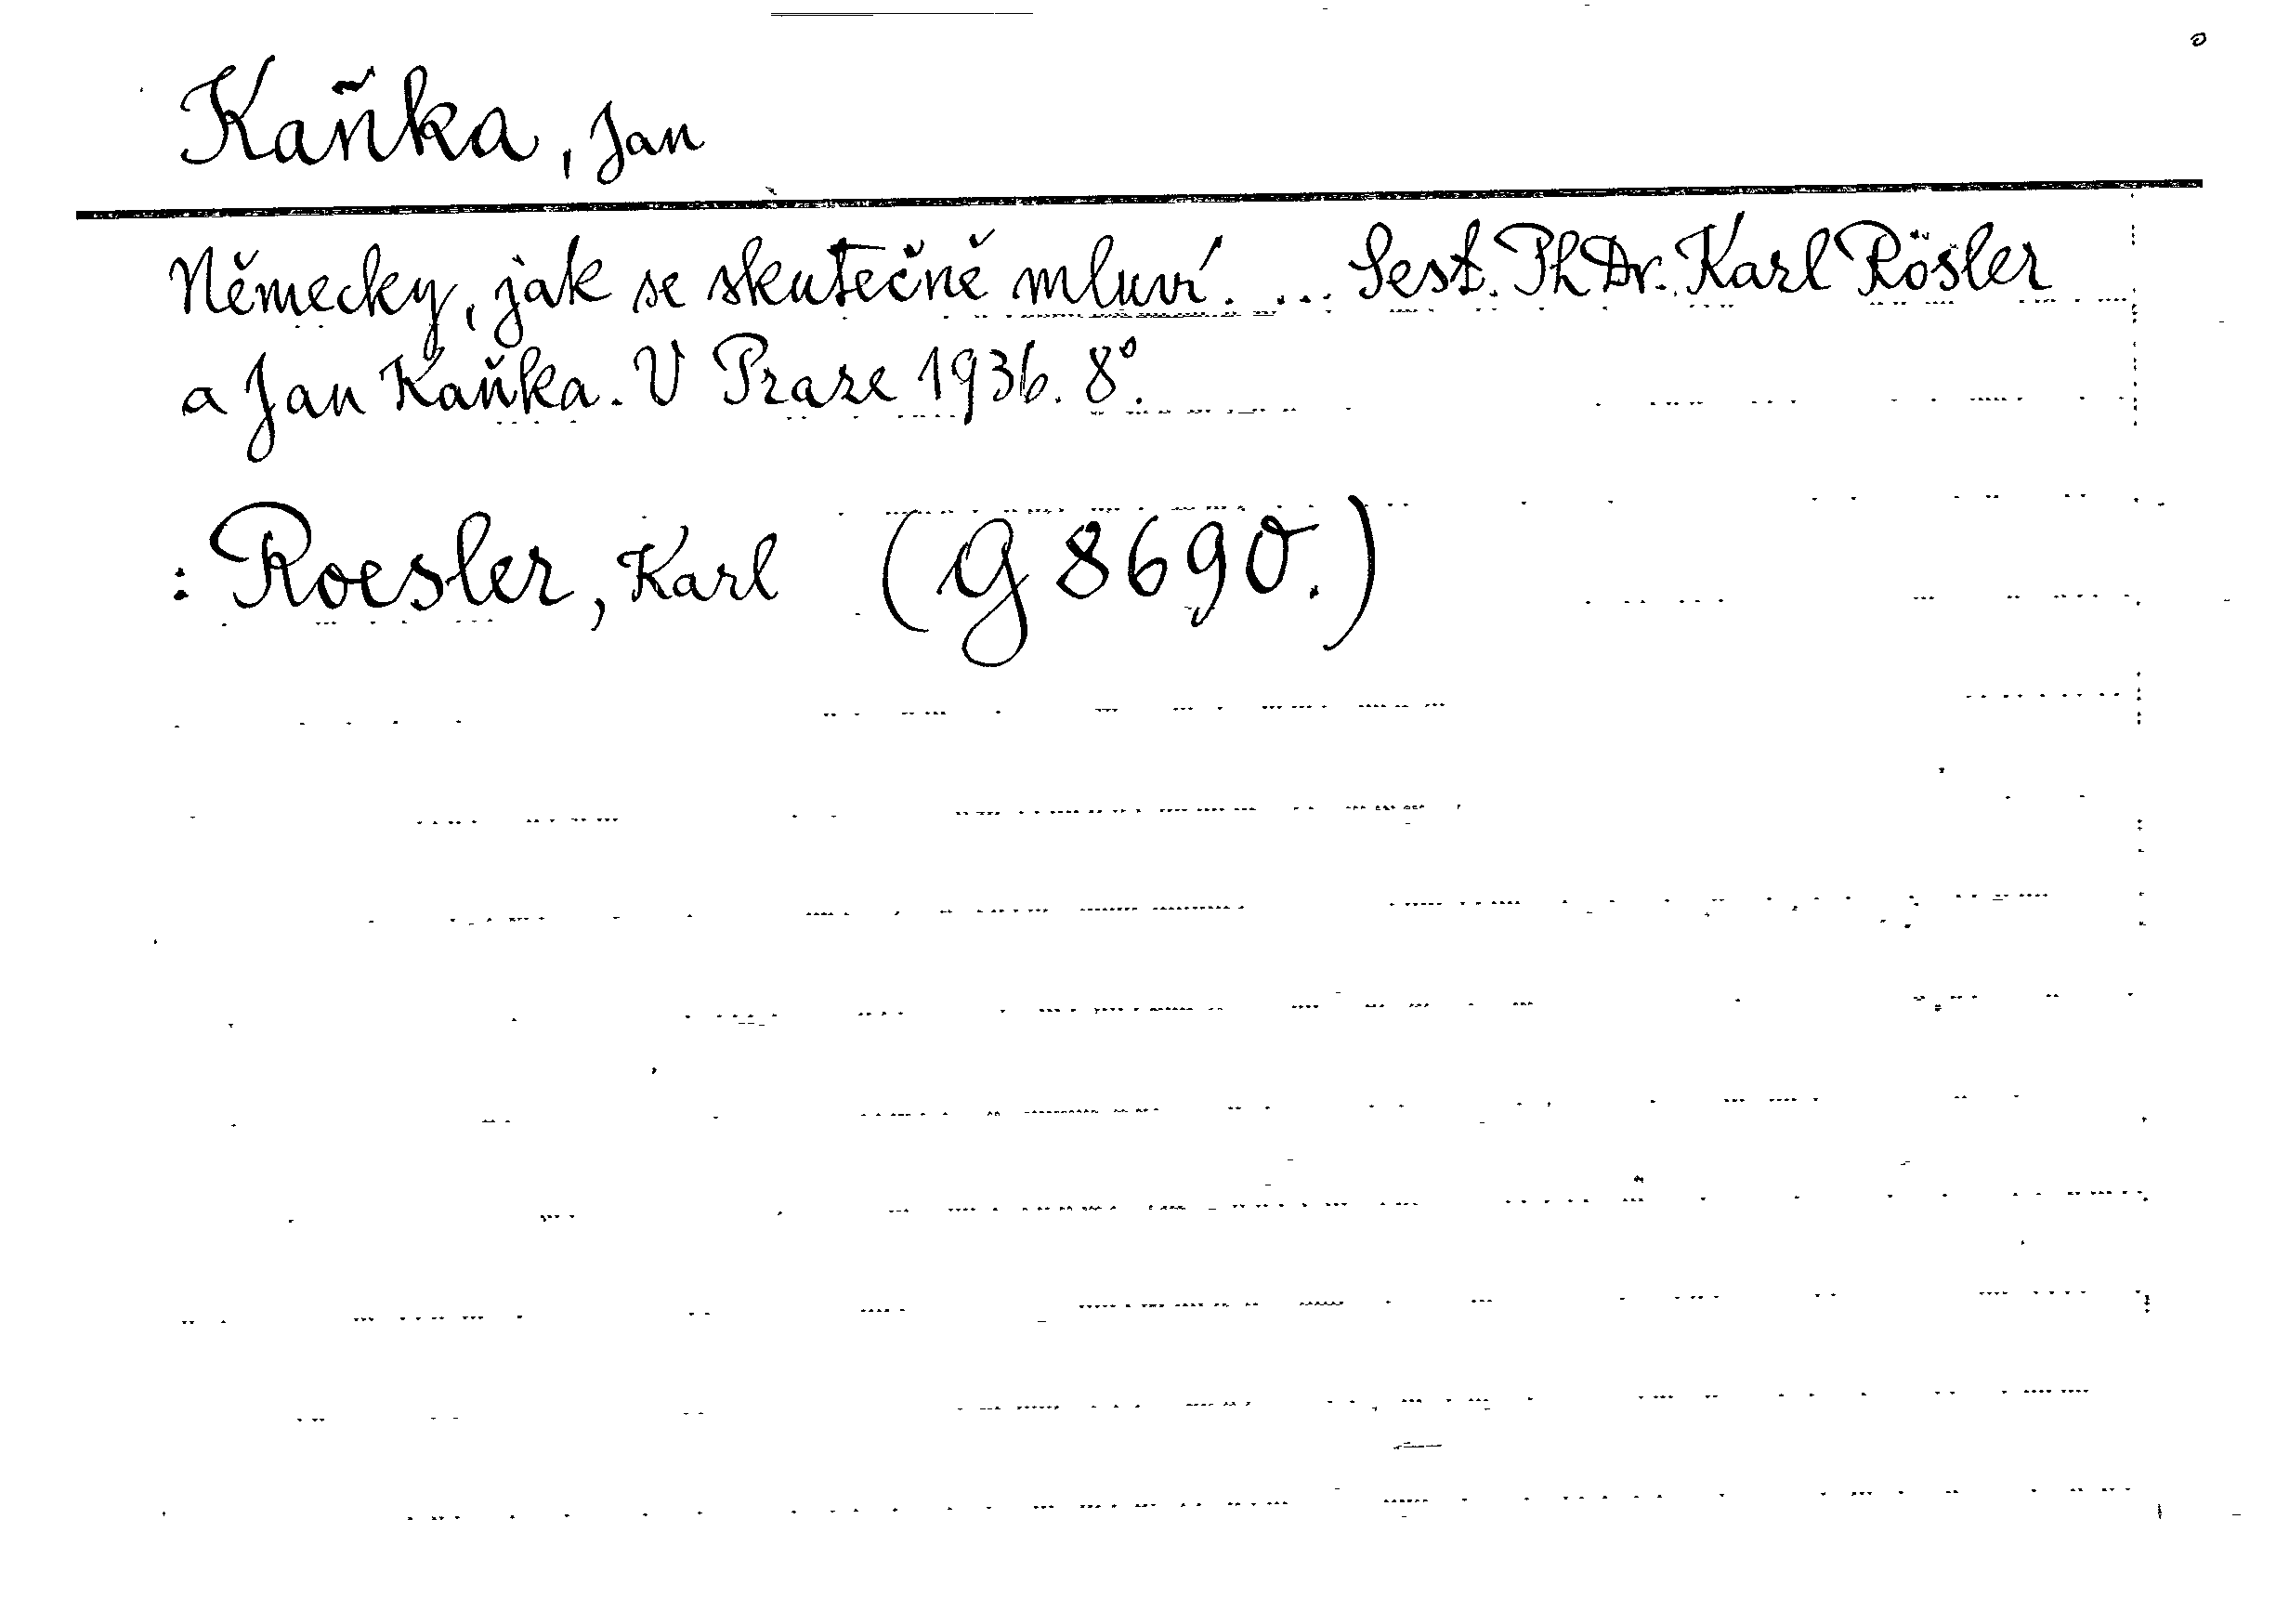 Kaňka, Jan
Německy, jak se skutečně mluví. ... Sest. PhDr. Karl Rösler
a Jan Kaňka. V Praze 1936. 8°.
: Roesler, Karl (G 8690.)